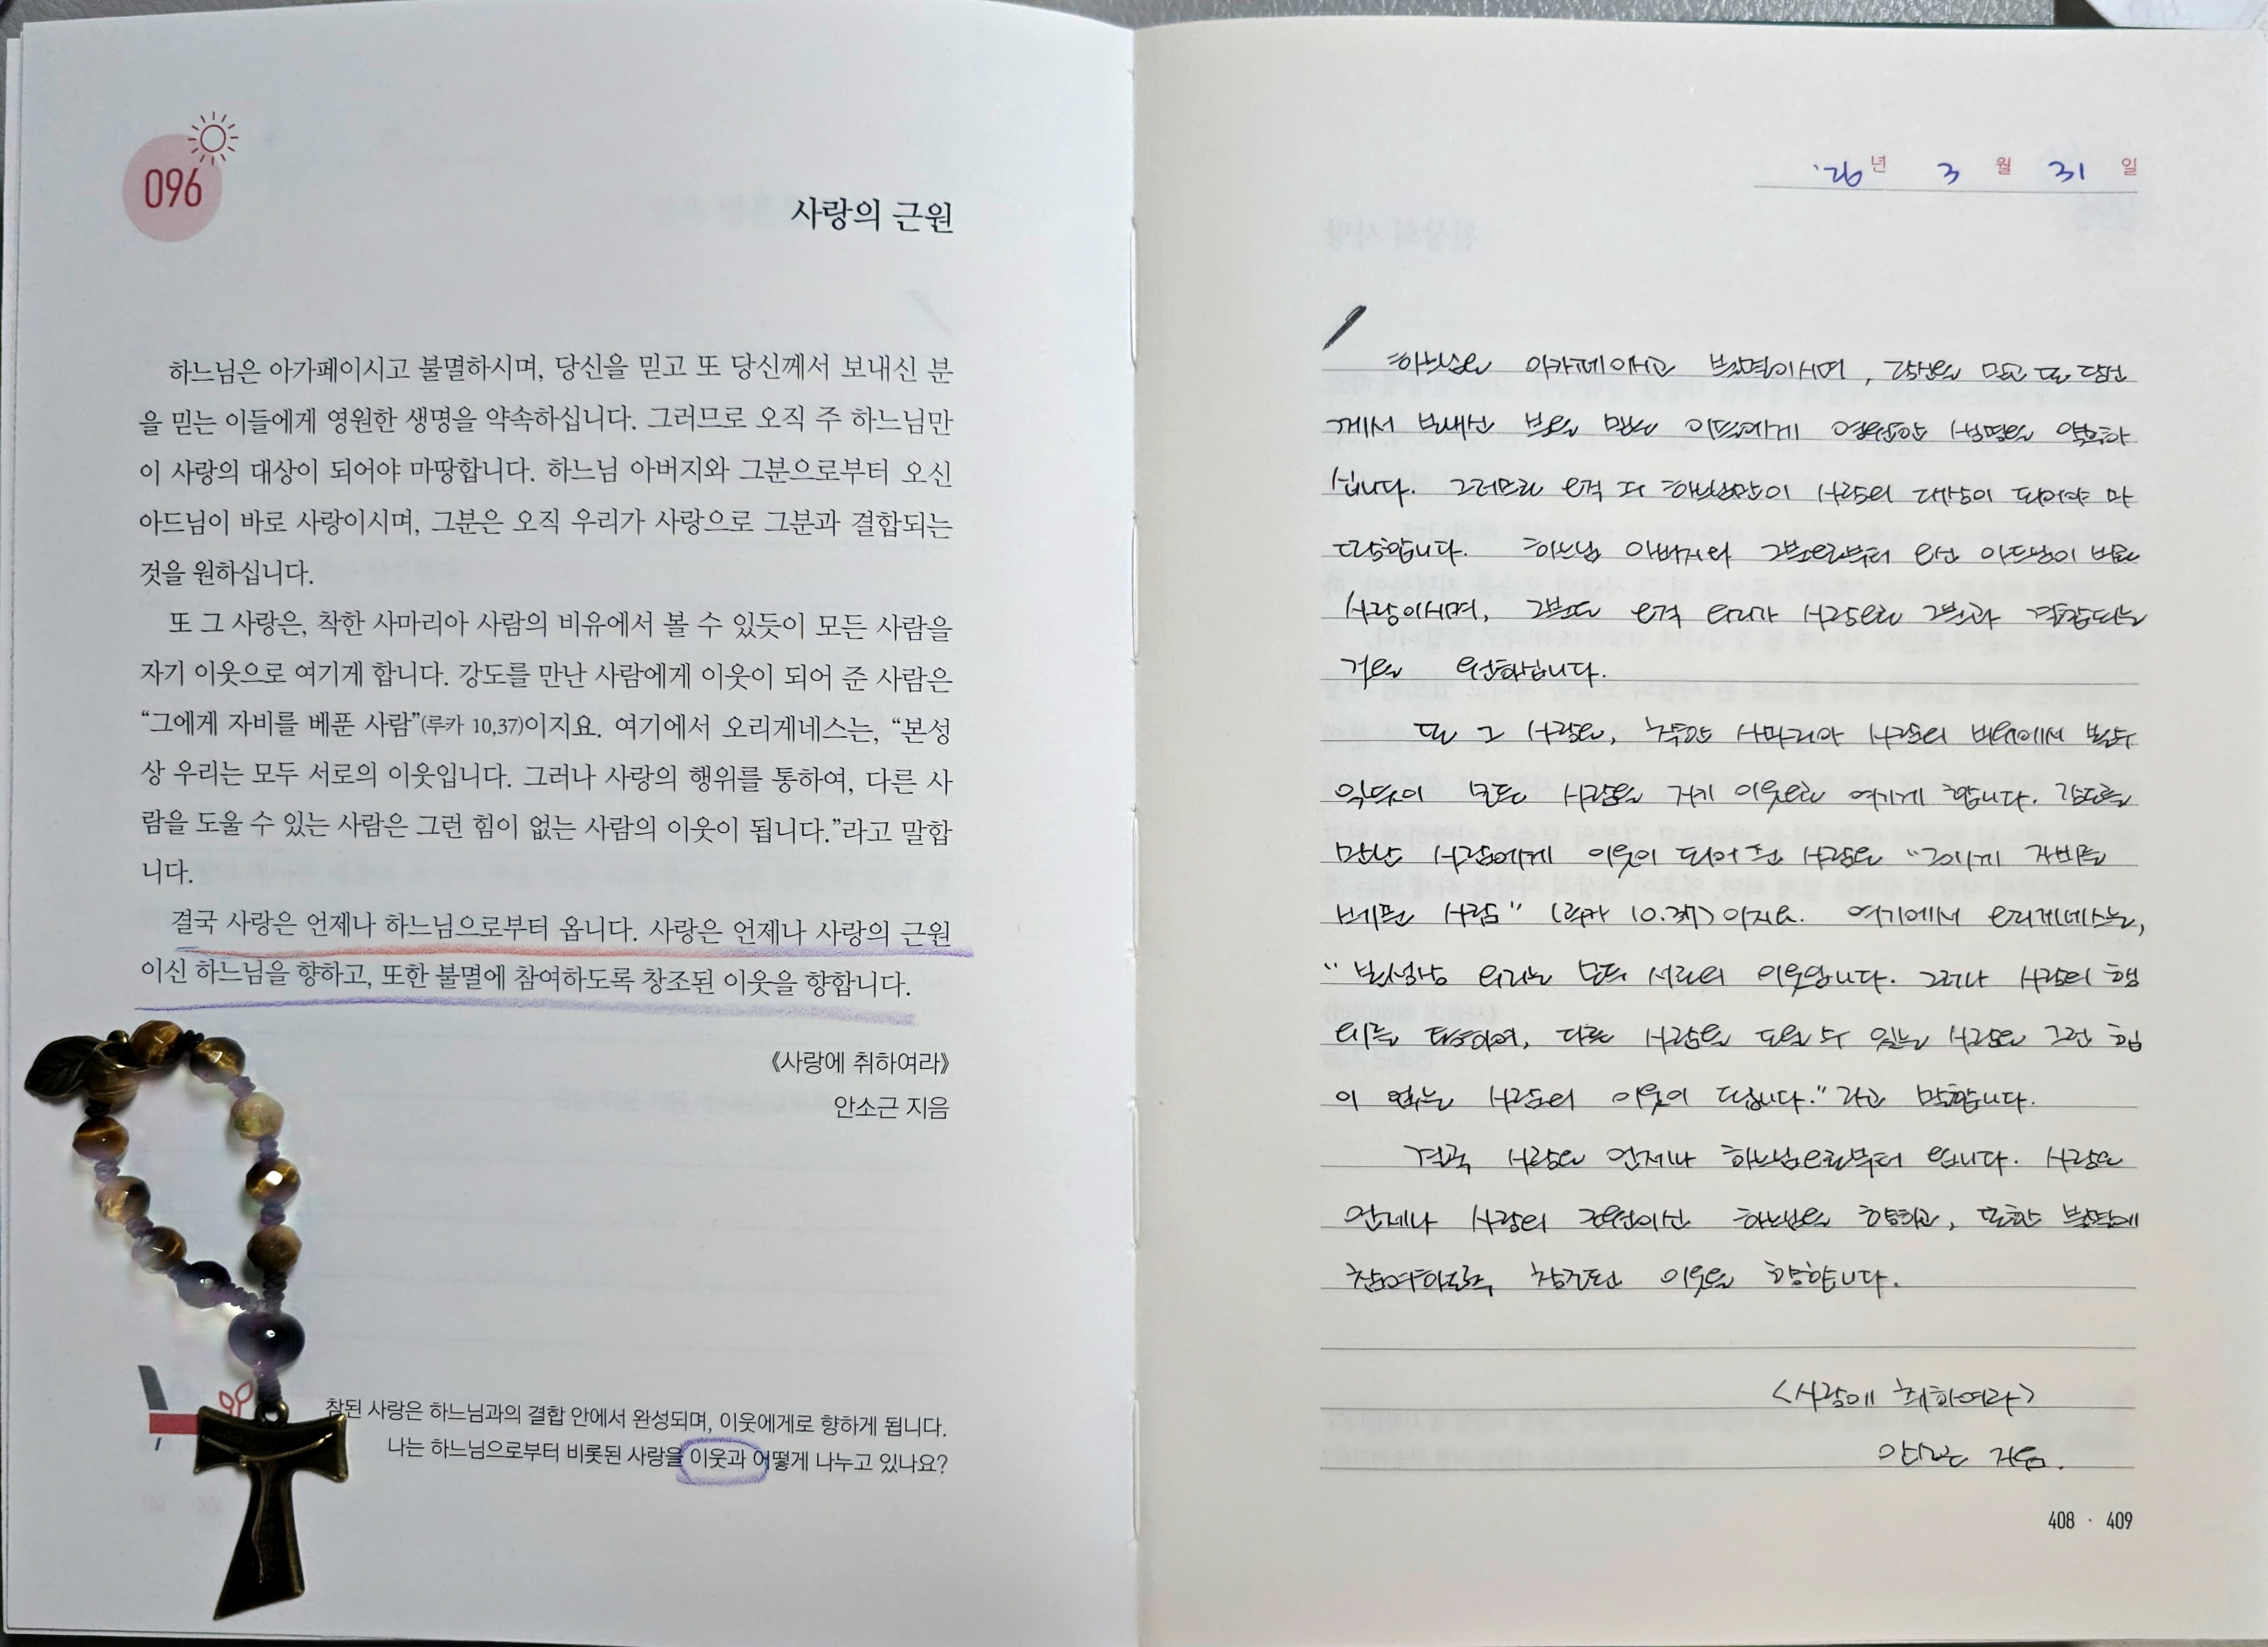 096
사랑의 근원
하느님은 아가페이시고 불멸하시며, 당신을 믿고 또 당신께서 보내신 분
을 믿는 이들에게 영원한 생명을 약속하십니다. 그러므로 오직 주 하느님만
이 사랑의 대상이 되어야 마땅합니다. 하느님 아버지와 그분으로부터 오신
아드님이 바로 사랑이시며, 그분은 오직 우리가 사랑으로 그분과 결합되는
것을 원하십니다.
또 그 사랑은, 착한 사마리아 사람의 비유에서 볼 수 있듯이 모든 사람을
자기 이웃으로 여기게 합니다. 강도를 만난 사람에게 이웃이 되어 준 사람은
“그에게 자비를 베푼 사람”(루카 10,37)이지요. 여기에서 오리게네스는, “본성
상 우리는 모두 서로의 이웃입니다. 그러나 사랑의 행위를 통하여, 다른 사
람을 도울 수 있는 사람은 그런 힘이 없는 사람의 이웃이 됩니다.”라고 말합
니다.
결국 사랑은 언제나 하느님으로부터 옵니다. 사랑은 언제나 사랑의 근원
이신 하느님을 향하고, 또한 불멸에 참여하도록 창조된 이웃을 향합니다.
《사랑에 취하여라》
안소근 지음
참된 사랑은 하느님과의 결합 안에서 완성되며, 이웃에게로 향하게 됩니다.
나는 하느님으로부터 비롯된 사랑을 이웃과 어떻게 나누고 있나요?
'26년 3월 31일
하느님은 아가페이시고 불멸이시며, 당신을 믿고 또 당신
께서 보내신 분을 믿는 이들에게 영원한 생명을 약속하
십니다. 그러므로 오직 주 하느님만이 사랑의 대상이 되어야 마
땅합니다. 하느님 아버지와 그분으로부터 오신 아드님이 바로
사랑이시며, 그분은 오직 우리가 사랑으로 그분과 결합되는
것을 원하십니다.
또 그 사랑은, 착한 사마리아 사람의 비유에서 볼 수
있듯이 모든 사람을 자기 이웃으로 여기게 합니다. 강도를
만난 사람에게 이웃이 되어 준 사람은 “그에게 자비를
베푼 사람” (루카 10.37) 이지요. 여기에서 오리게네스는,
“본성상 우리는 모두 서로의 이웃입니다. 그러나 사랑의 행
위를 통하여, 다른 사람을 도울 수 있는 사람은 그런 힘
이 없는 사람의 이웃이 됩니다.” 라고 말합니다.
결국 사랑은 언제나 하느님으로부터 옵니다. 사랑은
언제나 사랑의 근원이신 하느님을 향하고, 또한 불멸에
참여하도록 창조된 이웃을 향합니다.
<사랑에 취하여라>
안소근 지음.
408 · 409